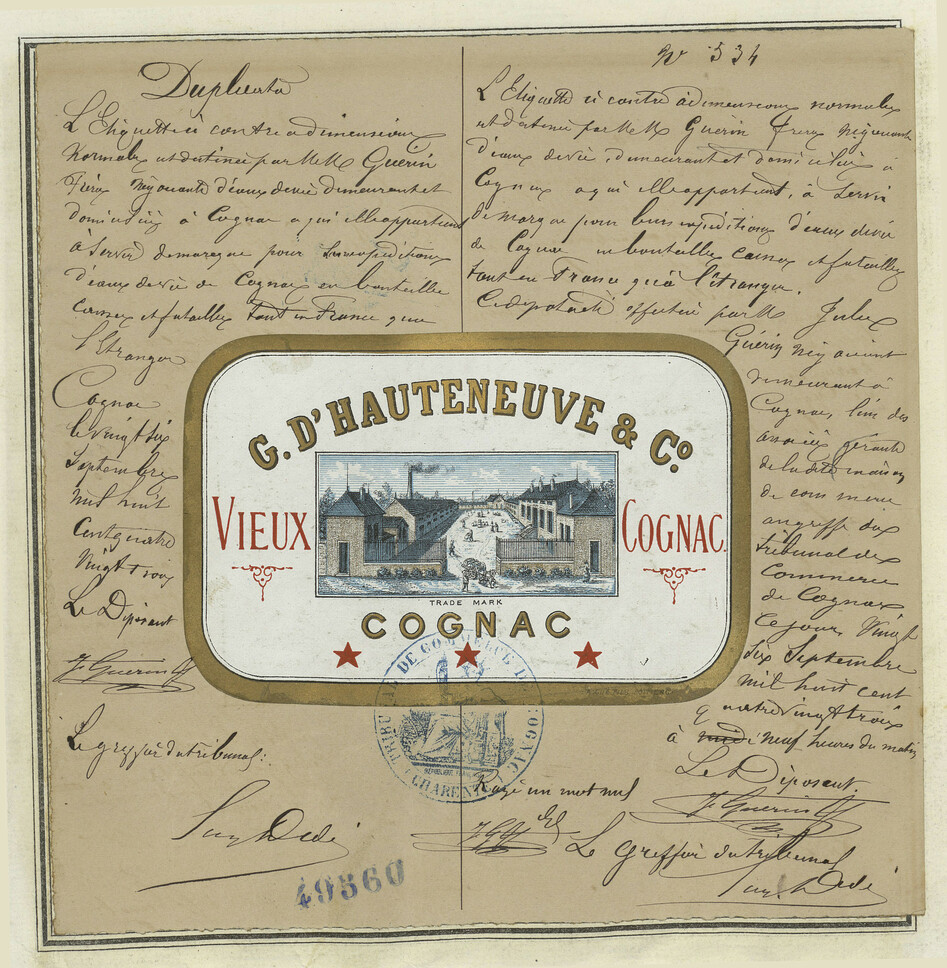 Duplicata
L'Etiquette ci contre a dimensions
Normales est destinée par MM Guérin
Frères Négociants d'eaux de vie demeurant et
domiciliés à Cognac a qui elle appartient
à Servir de marque pour leurs expéditions
d'eaux de vie de Cognac en bouteilles
caisses et futailles tant en France que
l'Etranger
Cognac
le vingt six
Septembre
mil huit
cent quatre
Vingt trois
Le Déposant
J. Guérin
Le greffier du tribunal:
49560
No 534
L'Etiquette ci contre a dimensions normales
est destinée par MM Guérin Frères Négociants
d'eaux de vie, demeurant et domiciliés à
Cognac a qui elle appartient, à Servir
de marque pour leurs expéditions d'eaux de vie
de Cognac en bouteilles caisses et futailles
tant en France qu'à l'étranger.
Ce dépot a été effectué par M. Jules
Guérin Négociant
demeurant à
Cognac, l'un des
associés gérants
de la dite maison
de commerce
au greffe du
tribunal de
Commerce
de Cognac
Ce jour Vingt
Six Septembre
mil huit cent
quatre vingt trois
à midi neuf heures du matin
Le Déposant.
J. Guérin
Rayé un mot nul
Le Greffier du tribunal
G. D'HAUTENEUVE & Co
VIEUX COGNAC.
TRADE MARK
COGNAC
TRIBUNAL DE COMMERCE DE COGNAC
RÉPUBLIQUE FRANÇAISE
(CHARENTE)